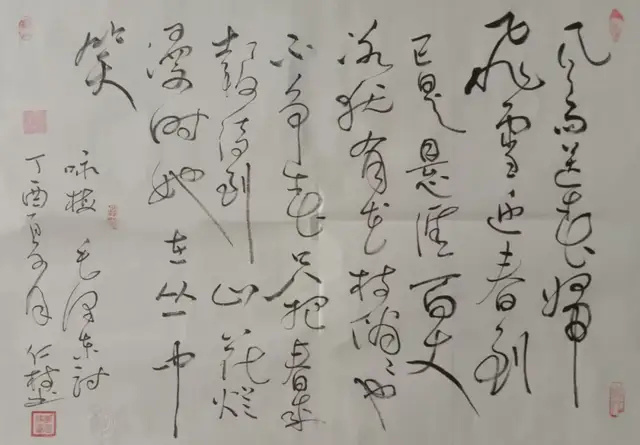 风雨送春归
飞雪迎春到
已是悬崖百丈
冰犹有花枝俏俏也
不争春只把春来
报待到山花烂
漫时她在丛中
笑
咏梅 毛泽东诗
丁酉夏月 仁枝书